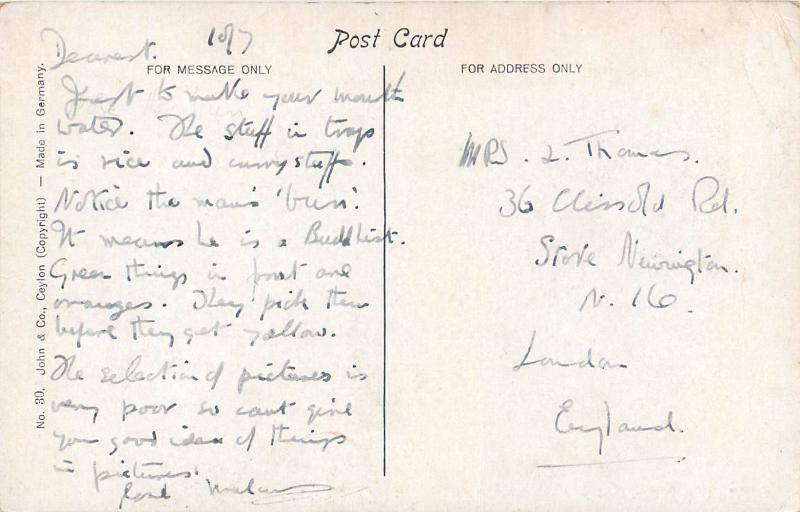 Post Card
FOR MESSAGE ONLY
Dearest.
Just to make your mouth
water. The stuff in trays
is rice and curry stuffs.
Notice the man's 'bun'.
It means he is a Buddhist.
Green things in front are
oranges. They pick them
before they get yellow.
The selection of pictures is
very poor so cant give
you good idea of things
in pictures.
love
FOR ADDRESS ONLY
MRS. L. Thomas.
36 Clissold Rd.
Stoke Newington.
N. 16.
London
England.
No. 30. John & Co., Ceylon (Copyright) — Made in Germany.